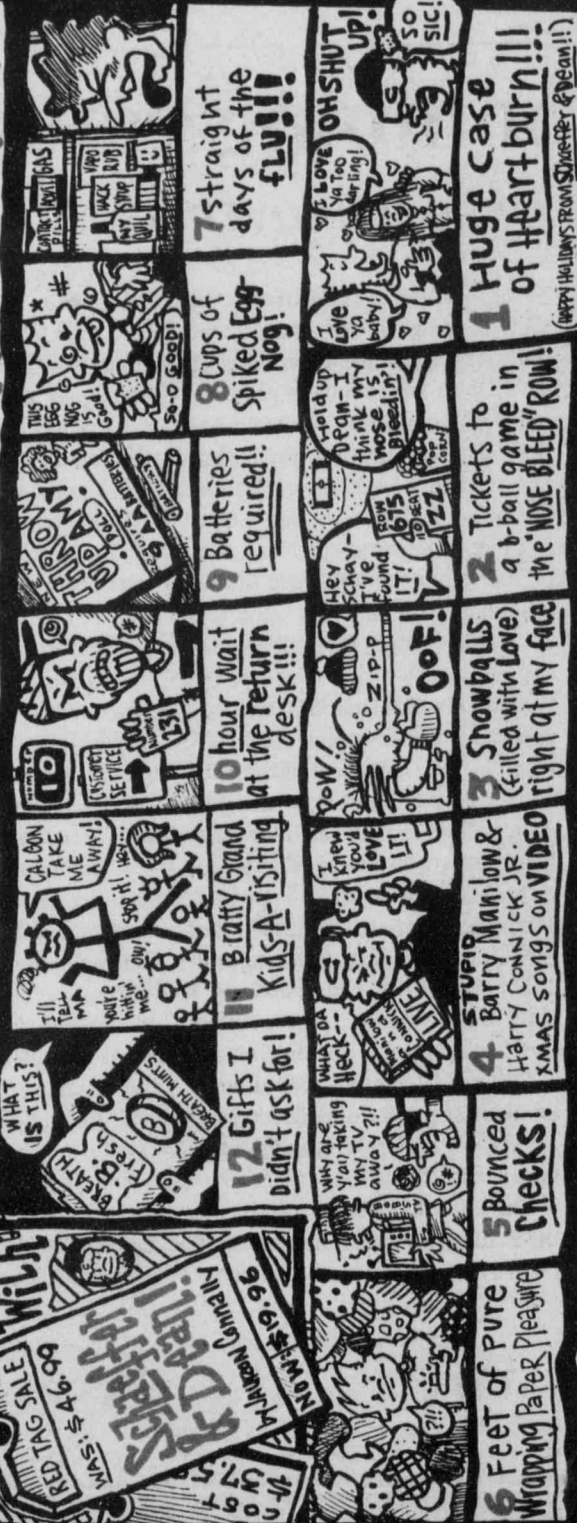 With
RED TAG SALE
WAS: $46.99
Schaeffer
& Dean!
NOW: $19.96
WHAT
IS THIS?
BREATH
"B"
Fresh
B
BREATH MINTS
12 Gifts I
didn't ask for!
I'll
TELL
MA
CALGON
TAKE
ME
AWAY!
you're
hittin'
me...
OW!
STOP IT!
HEY...
11 Bratty Grand
Kids-A-visiting
NUMBER
10
CUSTOMER
SERVICE
NUMBER
231
10 hour wait
at the return
desk!!!
NEW
THROW
UP AMY
DOLL
requires
9 AA BATTERIES
9 Batteries
required!!
THIS
EGG
NOG
IS
Good!
* #
So-o GOOD!
8 Cups of
Spiked Egg-
Nog!
GAS
VAPO
RUB
HACK
STOP
NY
QUIL
7 straight
days of the
FLU!!!
?!!
6 Feet of Pure
Wrapping Paper Pleasure
Why are
you taking
my TV
away?!!
5 Bounced
Checks!
WHAT DA
HECK---
LIVE
I
Knew
you'd
LOVE
IT!
STUPID
4 Barry Manilow &
Harry CONNICK JR.
XMAS songs on VIDEO
POW!
ZIP-P
OOF!
3 Snowballs
(filled with Love)
right at my face
Hey
Schay-
I've
Found
IT!
ROW
675
SEAT
ZZ
POP
CORN
Hold up
Dean-I
think my
nose is
Bleedin'!
2 Tickets to
a b-ball game in
the "NOSE BLEED" ROW!
I
Love
ya
baby!
I LOVE
Ya Too
darling!
OH SHUT
UP!
SO
SIC!
1 Huge case
of Heartburn!!!
(HAPPY HOLIDAYS FROM Schaeffer & Dean!!)